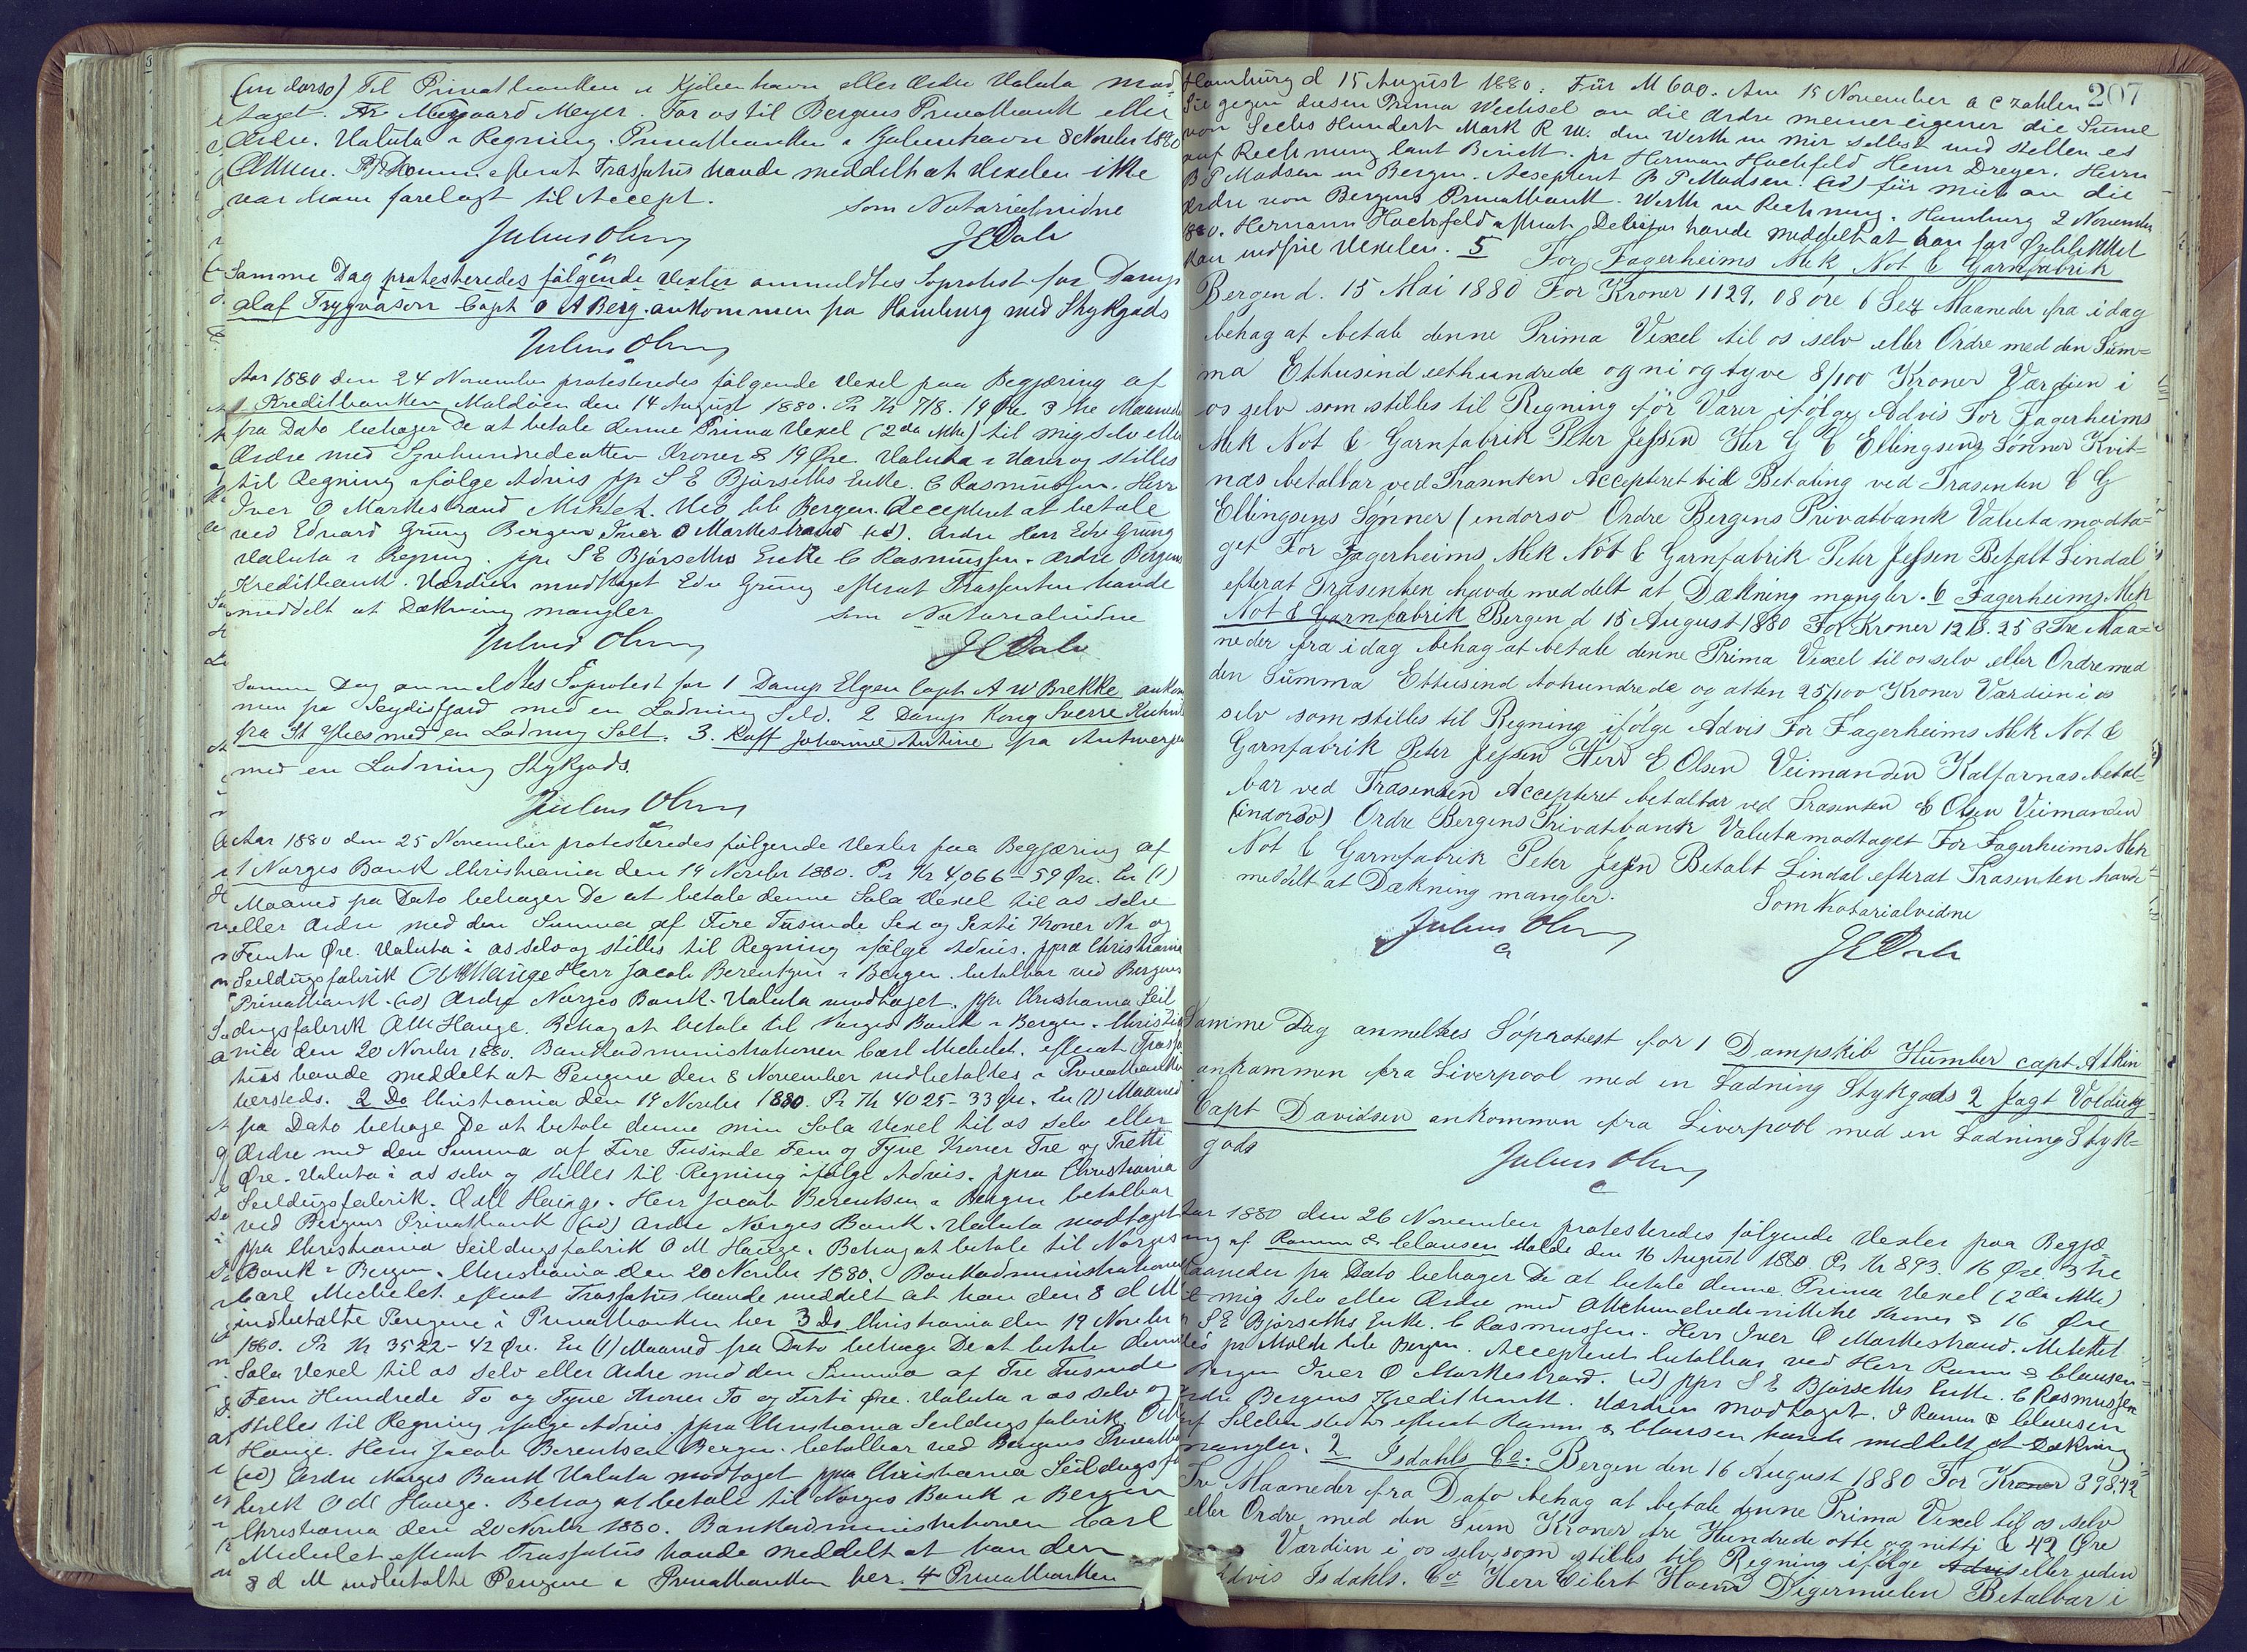 (in dorso) Til Privatbanken i Kjöbenhavn eller Ordre Valuta mod-
taget. Meyer. For os til Bergens Privatbank eller
Ordre. Valuta i Regning. Privatbanken i Kjøbenhavn 8 Novembr 1880
efterat Trassatus havde meddelt at Vexelen ikke
var ham forelagt til Accept. som Notarialvidne
Julius Olsen JEDale
Samme Dag protesteredes fölgende Vexler anmeldtes Soprotest for Damp
Olaf Trygvason Capt O A Berg. ankommen fra Hamburg med Stykgods
Julius Olsen
Aar 1880 den 24 November protesteredes følgende Vexel paa Begjæring af
1 Kreditbanken Maldöen den 14 August 1880. Pr Kr 718. 19 Øre 3 tre Maaneder
fra Dato behager De at betale denne Prima Vexel (2da ikke) til mig selv eller
Ordre med Syvhundredeatten Kroner & 19 Øre. Valuta i Varer og stilles
til Regning ifölge Advis pp S E Bjørseths Enke. C Rasmussen. Herr
Iver O Markestrand Bergen. Accepteret at betale
ved Edvard Grüng Bergen Iver O Markestrand (id). Ordre Herr Edv Grüng
Valuta i Regning. ppr S E Bjørseths Enke C Rasmussen. Ordre Bergens
Kreditbank. Værdien modtaget Edv Grüng efterat Trassenten havde
meddelt at Dækning mangler som Notarialvidne
Julius Olsen JEDale
Samme Dag anmeldtes Soprotest for 1 Damp Elgen Capt A W Brekke ankom
men fra Seydisfjord med en Ladning Sild. 2 Damp Kong Sverre
fra St Ybes med en Ladning Salt. 3. Kuff Johanne Antine fra Antwerpen
med en Ladning Stykgods.
Julius Olsen
Aar 1880 den 25 November protesteredes følgende Vexler paa Begjæring af
1 Norges Bank Christiania den 19 Novembr 1880. Pr Kr 4,066 - 59 Øre. En (1)
Maaned fra Dato behager De at betale denne Sola Vexel til os selv
eller Ordre med den Summa af Fire Tusinde Sex og Sexti Kroner Ni og
Femti Øre. Valuta i os selv og stilles til Regning ifølge Advis. ppra Christiania
Seildugsfabrik O M Hauge Herr Jacob Berentzen i Bergen. betalbar ved Bergens
Privatbank. (id) Ordre Norges Bank. Valuta modtaget. ppr Christiania Seil
dugsfabrik O M Hauge. Behag at betale til Norges Bank i Bergen. Christia
nia den 20 Novembr 1880. Bankadministrationen Carl Michelet. efterat Trassa
tus havde meddelt at Pengene den 8 November indbetaltes i Privatbanken
hersteds. 2 Do Christiania den 19 Novembr 1880. Pr Kr 4025 - 33 Øre. En (1) Maaned
fra Dato behage De at betale denne min Sola Vexel til os selv eller
Ordre med den Summa af Fire Tusinde Fem og Tyve Kroner Tre og Tretti
Øre. Valuta i os selv og stilles til Regning ifølge Advis. ppra Christiania
Seildugsfabrik. O M Hauge. Herr Jacob Berentsen i Bergen betalbar
ved Bergens Privatbank (id) Ordre Norges Bank. Valuta modtaget
ppa Christiania Seildugsfabrik O M Hauge. Behag at betale til Norges
Bank i Bergen. Christiania den 20 Novembr 1880. Bankadministrationen
Carl Michelet. efterat Trassatus havde meddelt at han den 8 d M
indbetalte Pengene i Privatbanken her 3 Do Christiania den 19 Novembr
1880. Pr Kr 3522 - 42 Øre. En (1) Maaned fra Dato behage De at betale denne
Sola Vexel til os selv eller Ordre med den Summa af Tre Tusinde
Fem Hundrede To og Tyve Kroner To og Forti Øre. Valuta i os selv og
stilles til Regning ifølge Advis. ppra Christiania Seildugsfabrik O M
Hauge. Herr Jacob Berentsen Bergen. betalbar ved Bergens Privatbank
(id) Ordre Norges Bank Valuta modtaget ppra Christiania Seildugsfa
brik O M Hauge. Behag at betale til Norges Bank i Bergen
Christiania den 20 Novembr 1880. Bankadministrationen Carl
Michelet efterat Trassatus havde meddelt at han den
8 d M indbetalte Pengene i Privatbanken her. 4 Privatbanken
207
Hamburg d 15 August 1880. Für M 600. Am 15 November a c zahlen
Sie gegen diesen Prima Wechsel an die Ordre meiner eigener die Sume
von Sechs Hundert Mark R M. den Werth in mir selbst und stellen es
auf Rechnung laut Bericht. pr Herman Hochfeld Henr Dreyer. Herrn
B P Madsen in Bergen. Accepteret B P Madsen. (id) für mich an die
Ordre von Bergens Privatbank. Werth in Rechnung. Hamburg 2 November
1880. Hermann Hochfeld efterat Debitor havde meddelt at han for Øjeblikket
kan indfrie Vexelen. 5 For Fagerheims Mek Not & Garnfabrik
Bergen d. 15 Mai 1880 For Kroner 1129, 08 øre 6 Sex Maaneder fra idag
behag at betale denne Prima Vexel til os selv eller Ordre med den Sum=
ma Ettusind etthundrede og ni og tyve 8/100 Kroner Værdien i
os selv som stilles til Regning för Varer ifølge Advis For Fagerheims
Mek Not & Garnfabrik Peter Jessen Her G C Ellingsens Sønner Kvit=
næs betalbar ved Trasenten Accepteret til Betaling ved Trasenten C G
Ellingsens Sønner (indorso Ordre Bergens Privatbank Valuta modta=
get For Fagerheims Mek Not & Garnfabrik Peter Jessen Betalt Lindal
efterat Trasenten havde meddelt at Dækning mangler. 6 Fagerheims Mek
Not & Garnfabrik Bergen d 15 August 1880 For Kroner 1218. 25 3 Tre Maa=
neder fra idag behag at betale denne Prima Vexel til os selv eller Ordre med
den Summa Ettusind tohundrede og atten 25/100 Kroner Værdien i os
selv som stilles til Regning ifølge Advis For Fagerheims Mek Not &
Garnfabrik Peter Jessen Herr E Olsen Veimanden Kalfarnæs betal=
bar ved Trasenten Accepteret betalbar ved Trasenten E Olsen Veimanden
(indorso) Ordre Bergens Privatbank Valuta modtaget For Fagerheims Mek
Not & Garnfabrik Peter Jessen Betalt Lindal efterat Trasenten havde
meddelt at Dækning mangler. Som Notarialvidne
Julius Olsen JEDale
Samme Dag anmeltes Söprotest for 1 Dampskib Humber capt Atkin
ankommen fra Liverpool med en Ladning Stykgods 2 Jagt Volding
Capt Davidsen ankommen fra Liverpool med en Ladning Styk=
gods
Julius Olsen
Aar 1880 den 26 November protesteredes følgende Vexler paa Begjæ
ring af Ramm & Clausen Molde den 16 August 1880. Pr Kr 893. 16 Øre. 3 tre
Maaneder fra Dato behager De at betale denne Prima Vexel (2da ikke)
til mig selv eller Ordre med Ottehundredenittitre Kroner & 16 Øre
S E Bjørseths Enke. C Rasmussen. Herr Iver O Markestrand.
pr Molde Bergen. Accepteret betalbar ved Herr Ramm & Clausen
Bergen Iver O Markestrand. (id) ppr S E Bjørseths Enke. C Rasmussen
Ordre Bergens Kreditbank. Værdien modtaget. I Ramm & Clausen
efterat Ramm & Clausen havde meddelt at Dækning
mangler. 2 Isdahls Co. Bergen den 16 August 1880 For Kroner 398,42
Tre Maaneder fra Dato behag at betale denne Prima Vexel til os selv
eller Ordre med den Sum Kroner tre Hundrede otte og nitti & 42 Øre
Værdien i os selv, som stilles til Regning ifølge Advis eller uden
Advis Isdahls. Co Herr Eilert Digermulen Betalbar i